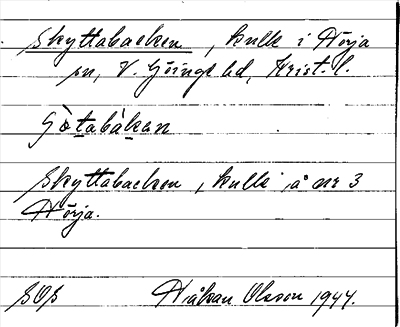 Skyttabacken, kulle i Hörja
sn, V. Göinge hd, Krist. l.
Skyttabacken, kulle å nr 3
Hörja.
SOS Håkan Olsson 1944.